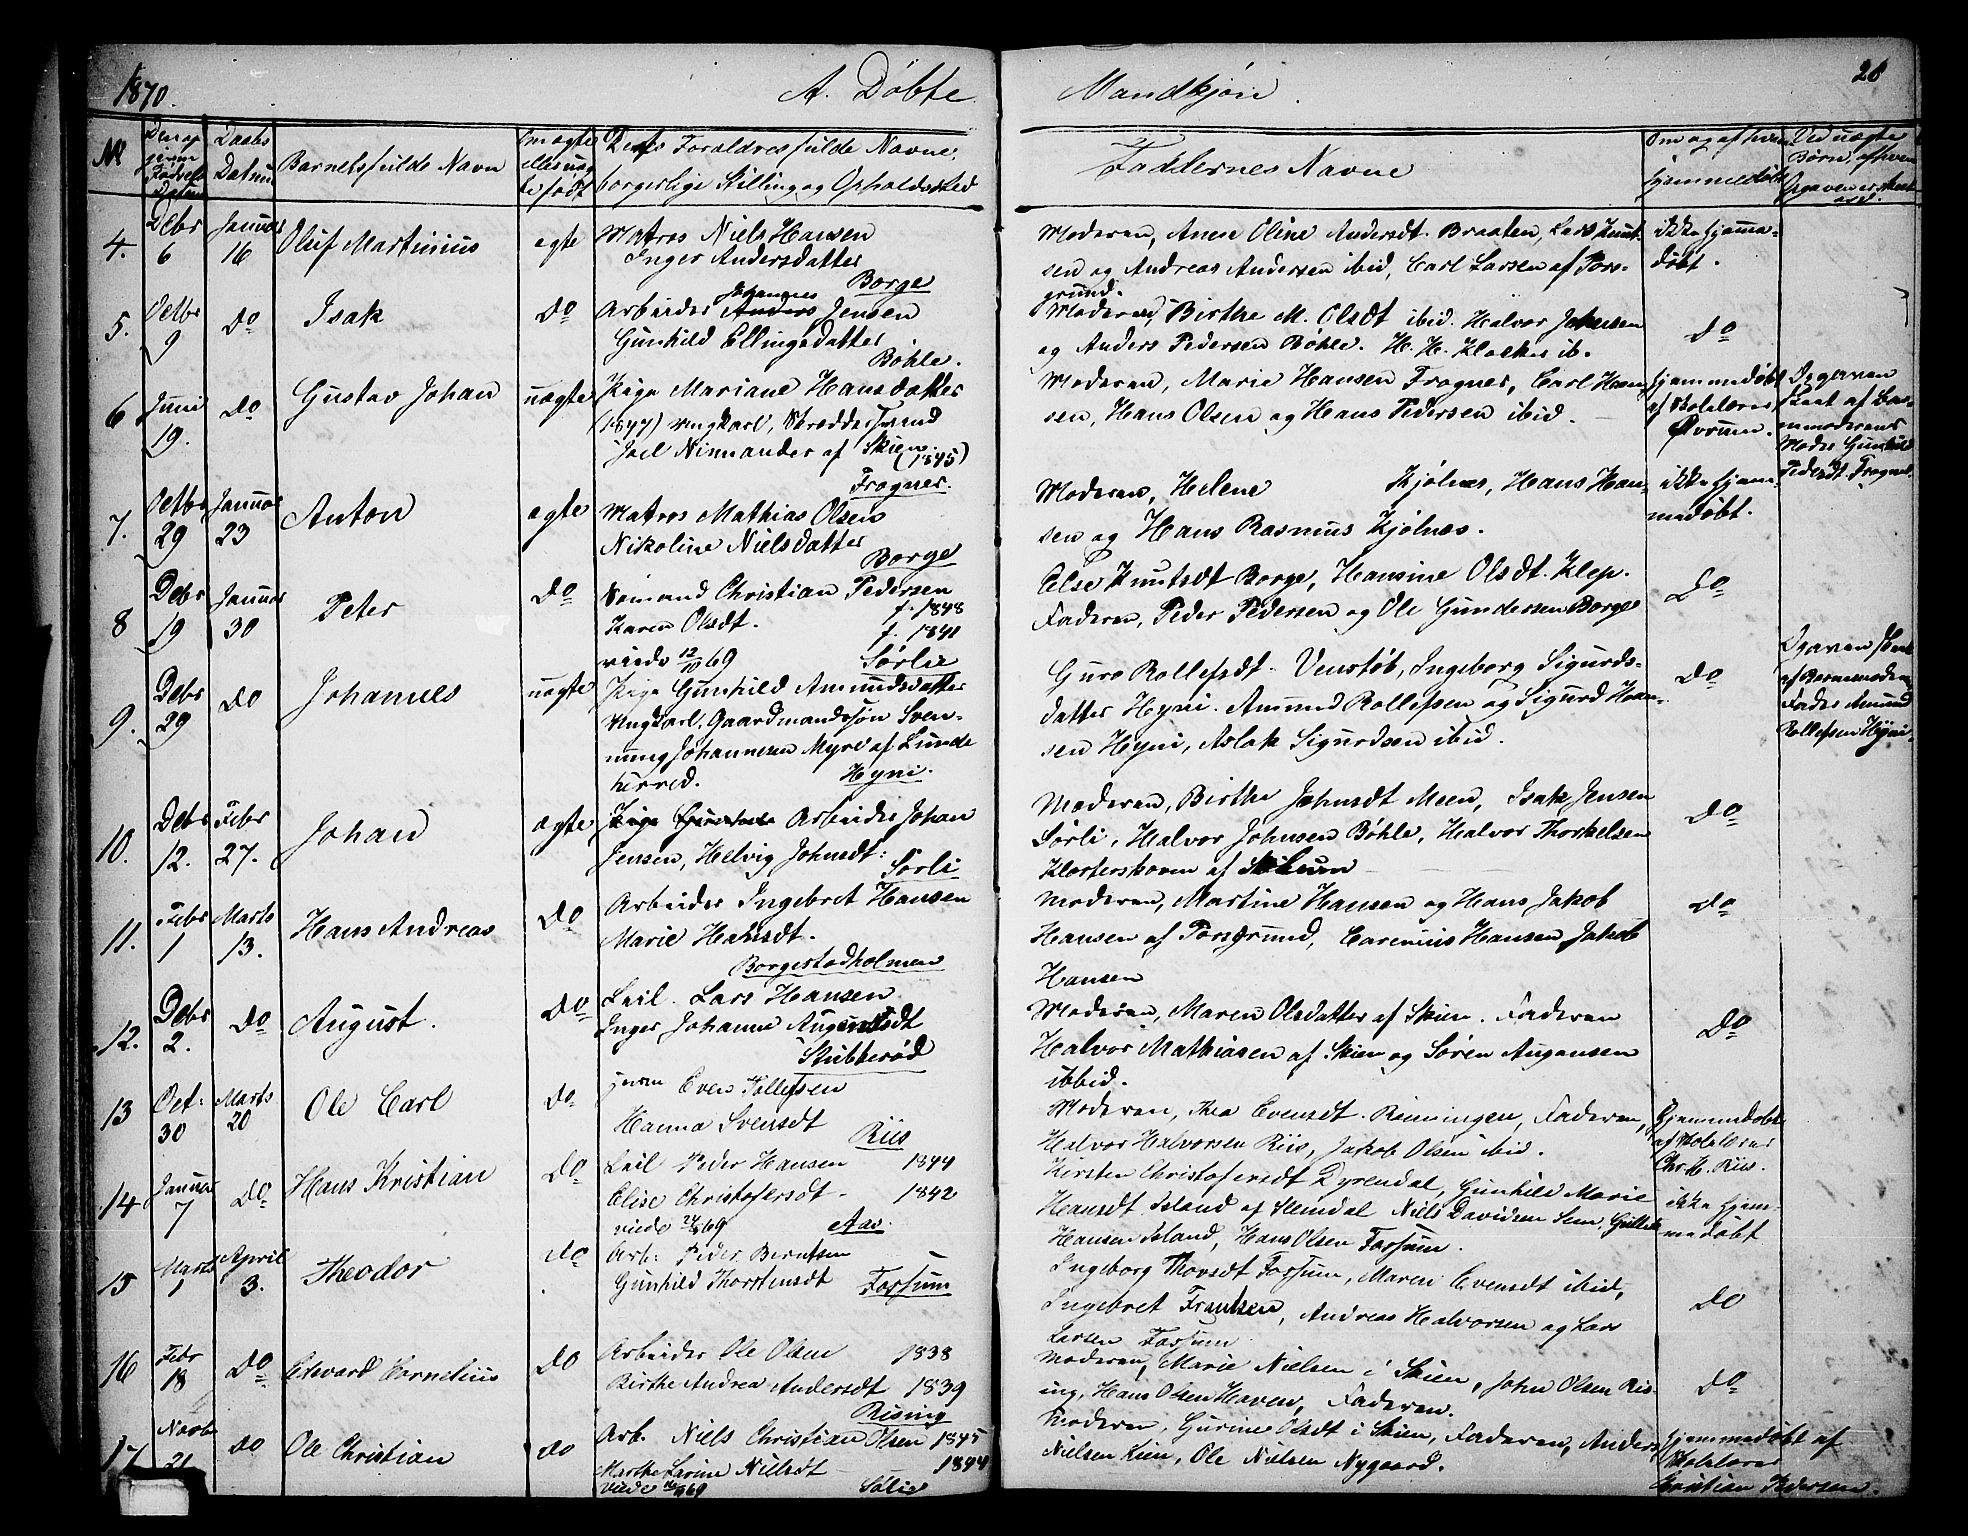 1870.
A. Døbte
Mandkjøn.
No
Datum
Barnets fulde Navn
Forældres fulde Navne,
borgerlige Stilling og Opholdssted
Faddernes Navne
4.
Debr 6
Januar 16
Oluf Martinius
ægte
Matros Niels Hansen
Inger Andersdatter
Borge
Moderen, Anne Oline Andersdt. Braaten, Lars Knut-
sen og Andreas Andersen ibid, Carl Larsen af Pors-
grund.
ikke hjemme-
døbt.
5.
Octbr 9
Do
Isak
Do
Arbeider Johannes Jensen
Gunhild Ellingsdatter
Bøhle.
Moderen, Birthe M. Olsdt ibid. Halvor Johnsen
og Anders Pedersen Bøhle. H. H. Klokker ib.
Do
6
Juni 19.
Do
Gustav Johan
uægte
Pige Mariane Hansdatter
(1844) ungkarl, Skrædder svend
Joel Ninnander af Skien.
(1845)
Frogner.
Moderen, Marie Hansen Frogner, Carl Han-
sen, Hans Olsen og Hans Pedersen ibid.
Hjemmedøbt
af Skolelærer
Ovrum.
Opgaven
skeet af Bar-
nemoderens
Moder Gunhild
Pedersdt Frogner.
7.
Octbr 29
Januar 23
Anton
ægte
Matros Mathias Olsen
Nikoline Nielsdatter
Borge
Moderen, Helene Kjølnes, Hans Han-
sen og Hans Rasmus Kjølnes.
ikke hjem-
medøbt.
8
Debr 19
Januar 30
Peter
Do
Sømand Christian Pedersen
f. 1848
Karen Olsdt.
f. 1841
viede 12/10 69
Sørlie
Else Knutsdt Borge, Hansine Olsdt. Klep.
Faderen, Peder Pedersen og Ole Gundersen Borge
Do
9.
Debr 29
Do
Johannes
uægte
Pige Gunhild Amundsdatter
Ungkarl, Gaardmandssøn Sven-
nung Johannesen Myre af Lunde
herred.
Hyni.
Guro Rollefsdt. Venstøb, Ingeborg Sigurds-
datter Hyni. Amund Rollefsen og Sigurd Han-
sen Hyni, Aslak Sigurdsen ibid.
Do
Opgaven skeet
af Barnemoderens
Fader Amund
Rollefsen Hyni.
10.
Debr 12.
Febr 27.
Johan
ægte
Arbeider Johan
Jensen, Helvig Johnsdt:
Sørli
Moderen, Birthe Johnsdt Meen, Isak Jensen
Sørli, Halvor Johnsen Bøhle, Halvor Thorkelsen
Klosterskoven af Solum
Do
11.
Febr 1
Marts 13.
Hans Andreas
Do
Arbeider Ingebret Hansen
Marie Hansdt.
Borgestadholmen
Moderen, Martine Hansen og Hans Jakob
Hansen af Porsgrund, Carenius Hansen Jakob
Hansen
Do
12.
Debr 2.
Do
August.
Do
Leil. Lars Hansen
Inger Johanne Augundsdt
Stubberød
Moderen, Maren Olsdatter af Skien. Faderen
Halvor Mathiasen af Skien og Søren Augunsen
ibid.
Do
13
Oct: 30
Marts 20
Ole Carl
Do
Even Tollefsen
Hanna Svensdt
Riis
Moderen, Thea Evensdt. Rinningen, Faderen,
Halvor Halvorsen Riis, Jakob Olsen ibid.
Hjemmedøbt
af Skolelærer
Chr. H. Riis.
14
Januar 7
Do
Hans Kristian
Do
Leil Peder Hansen 1844
Elise Christofersdt. 1842
Aas.
Kirsten Christofersdt Dyrendal, Gunhild Marie
Hansdt. Island af Slemdal Niels Davidsen Sem,
Hansen Island, Hans Olsen Fossum.
ikke hjem-
medøbt
15
Marts 1
April 3.
Theodor
Do
Arb: Peder Berntsen
Gunhild Thorstensdt
Fossum
Ingeborg Thovsdt Fossum, Maren Evensdt ibid,
Ingebret Frantsen, Andreas Halvorsen og Lars
Larsen Fossum
Do
16
Febr 18
Do
Edvard Cornelius
Do
Arbeider Ole Olsen 1838
Birthe Andrea Andersdt 1839
Rising
Moderen, Marie Nielsen i Skien, John Olsen Ris-
ing, Hans Olsen Haven, Faderen.
Do
17
Novbr 21
Do
Ole Christian
Do
Arb. Niels Christian Olsen 1845
Marthe Karine Nielsdt 1844
Moderen, Gurine Olsdt i Skien, Faderen, Anders
Nielsen Kien, Ole Nielsen Nygaard.
Hjemmedøbt af
Skolelærer
Kristian Pedersen.